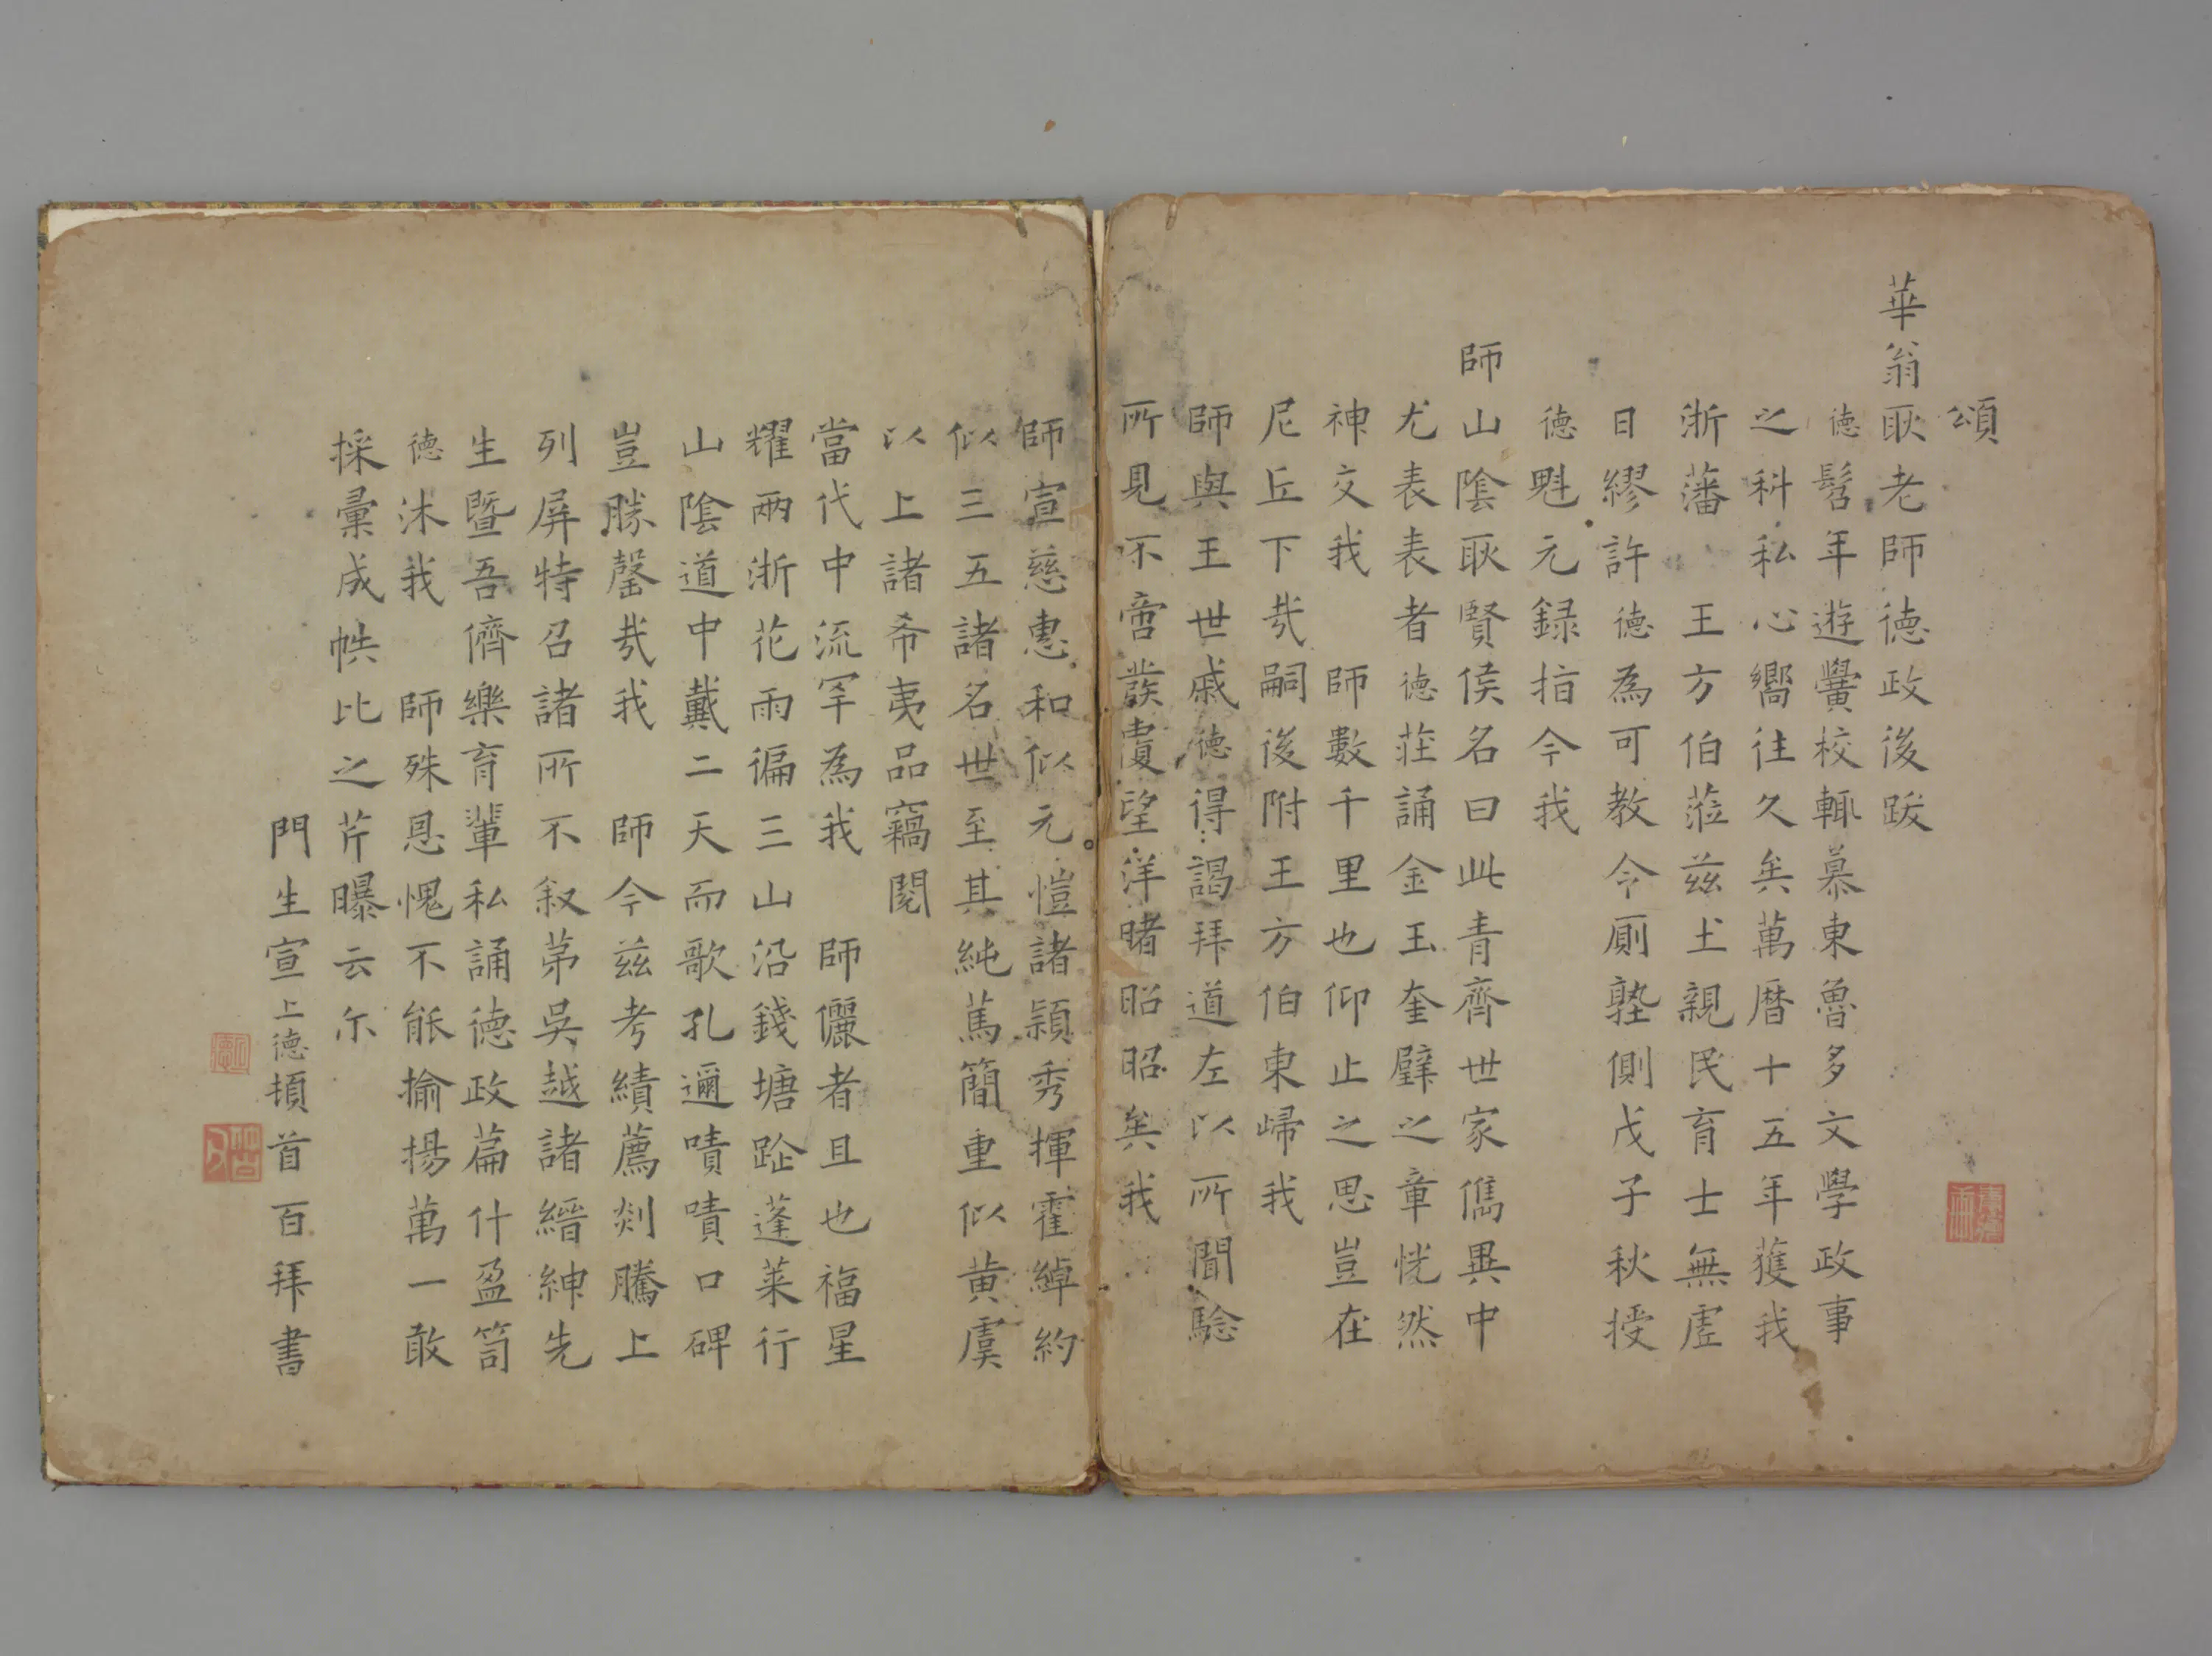 頌
華翁耿老師德政後跋
德髫年遊黌校輒慕東魯多文學政事
之科私心嚮往久矣萬曆十五年獲我
浙藩王方伯蒞茲土親民育士無虛
日繆許德為可教令厠塾側戊子秋授
德魁元録指今我
師山陰耿賢侯名曰此青齊世家儁異中
尤表表者德莊誦金玉奎璧之章恍然
神交我師數千里也仰止之思豈在
尼丘下哉嗣後附王方伯東歸我
師與王世戚德得謁拜道左以所聞驗
所見不啻叢臺望洋睹昭昭矣我
師宣慈惠和似元愷諸穎秀揮霍綽約
似三五諸名世至其純篤簡重似黃虞
以上諸希夷品竊閱
當代中流罕為我師儷者且也福星
耀兩浙花雨徧三山沿錢塘趾蓬萊行
山陰道中戴二天而歌孔邇嘖嘖口碑
豈勝罄哉我師今茲考績薦剡騰上
列屏特召諸所不叙第吳越諸縉紳先
生暨吾儕樂育輩私誦德政篇什盈笥
德沐我師殊恩愧不能揄揚萬一敢
採彙成帙比之芹曝云尓
門生宣上德頓首百拜書